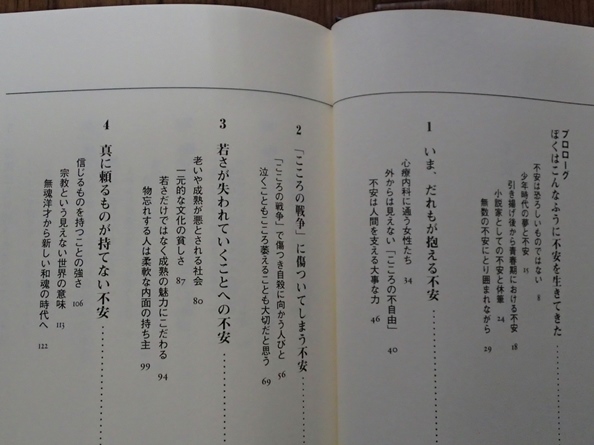 プロローグ
ぼくはこんなふうに不安を生きてきた…………
不安は恐ろしいものではない 8
少年時代の夢と不安 15
引き揚げ後から青春期における不安 18
小説家としての不安と体重 24
無数の不安にとり囲まれながら 29
1 いま、だれもが抱える不安…………
心療内科に通う女性たち 34
外からは見えない「こころの不自由」 40
不安は人間を支える大事な力 46
2 「こころの戦争」に傷ついてしまう不安…………
「こころの戦争」で傷つき自殺に向かう人びと 56
泣くこともこころ萎えることも大切だと思う 69
3 若さが失われていくことへの不安…………
老いや成熟が悪とされる社会 80
一元的な文化の貧しさ 87
若さだけではなく成熟の魅力にこだわる 94
物忘れする人は柔軟な内面の持ち主 99
4 真に頼るものが持てない不安…………
信じるものを持つことの強さ 106
宗教という見えない世界の意味 113
無魂洋才から新しい和魂の時代へ 122